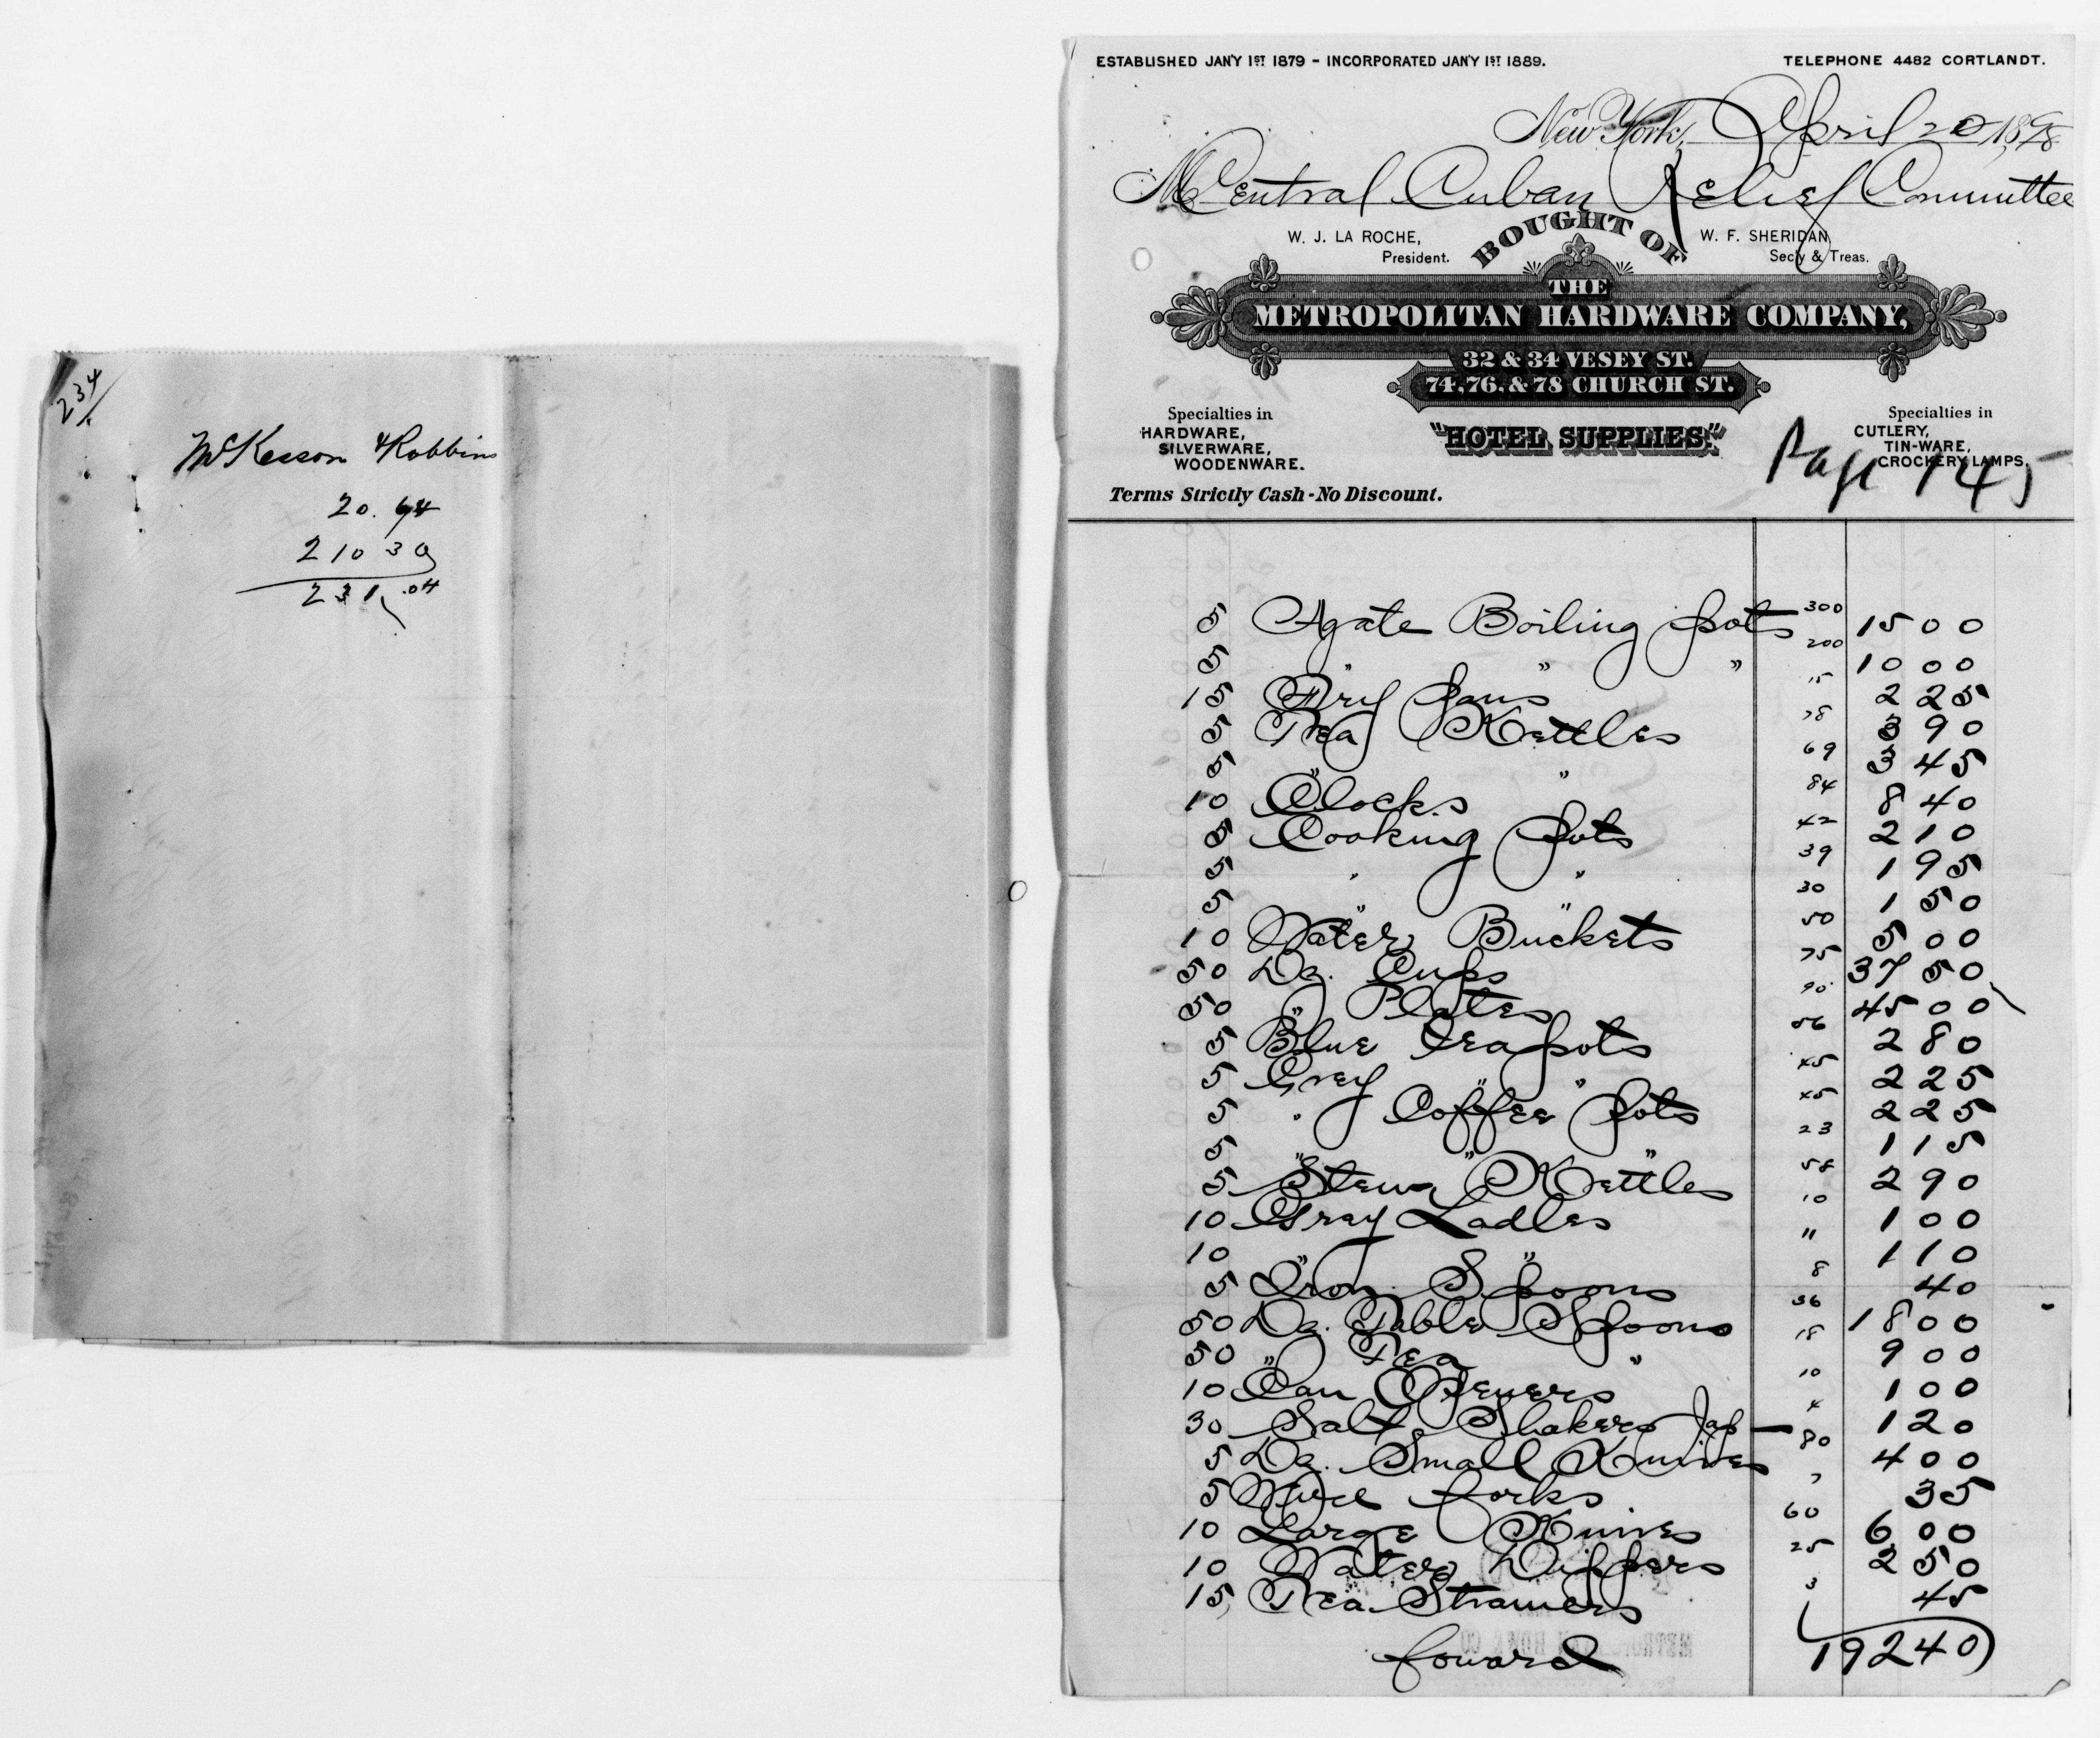 234
McKesson & Robbins
20.64
210 30
231.04
ESTABLISHED JAN'Y 1ST 1879 - INCORPORATED JAN'Y 1ST 1889.
TELEPHONE 4482 CORTLANDT.
New York, April 20 1898
M Central Cuban Relief Committee
BOUGHT OF
W. J. LA ROCHE,
President.
W. F. SHERIDAN,
Sec'y & Treas.
THE
METROPOLITAN HARDWARE COMPANY,
32 & 34 VESEY ST.
74, 76, & 78 CHURCH ST.
Specialties in
HARDWARE,
SILVERWARE,
WOODENWARE.
"HOTEL SUPPLIES."
Specialties in
CUTLERY,
TIN-WARE,
CROCKERY, LAMPS.
Page 145
Terms Strictly Cash - No Discount.
5 Agate Boiling pots 300 15 00
5 " " " 200 10 00
15 Fry pans 15 2 25
5 Tea Kettles 78 3 90
5 " " 69 3 45
10 Clocks 84 8 40
5 Cooking pots 42 2 10
5 " " 39 1 95
5 " " 30 1 50
10 Water Buckets 50 5 00
50 Dz. Cups 75 37 50
50 " Plates 90 45 00
5 Blue teapots 56 2 80
5 Grey " " 45 2 25
5 " Coffee pots 45 2 25
5 " " " 23 1 15
5 Stew Kettles 58 2 90
10 Gray Ladles 10 1 00
10 " " 11 1 10
5 Iron Spoons 8 40
50 Dz. Table Spoons 36 18 00
50 " Tea " 18 9 00
10 Can Openers 10 1 00
30 Salt Shakers Jap 4 1 20
5 Dz. Small Knives 80 4 00
5 forks 7 35
10 Large Knives 60 6 00
10 Water Dippers 25 2 50
15 Tea Strainers 3 45
foward 192 40